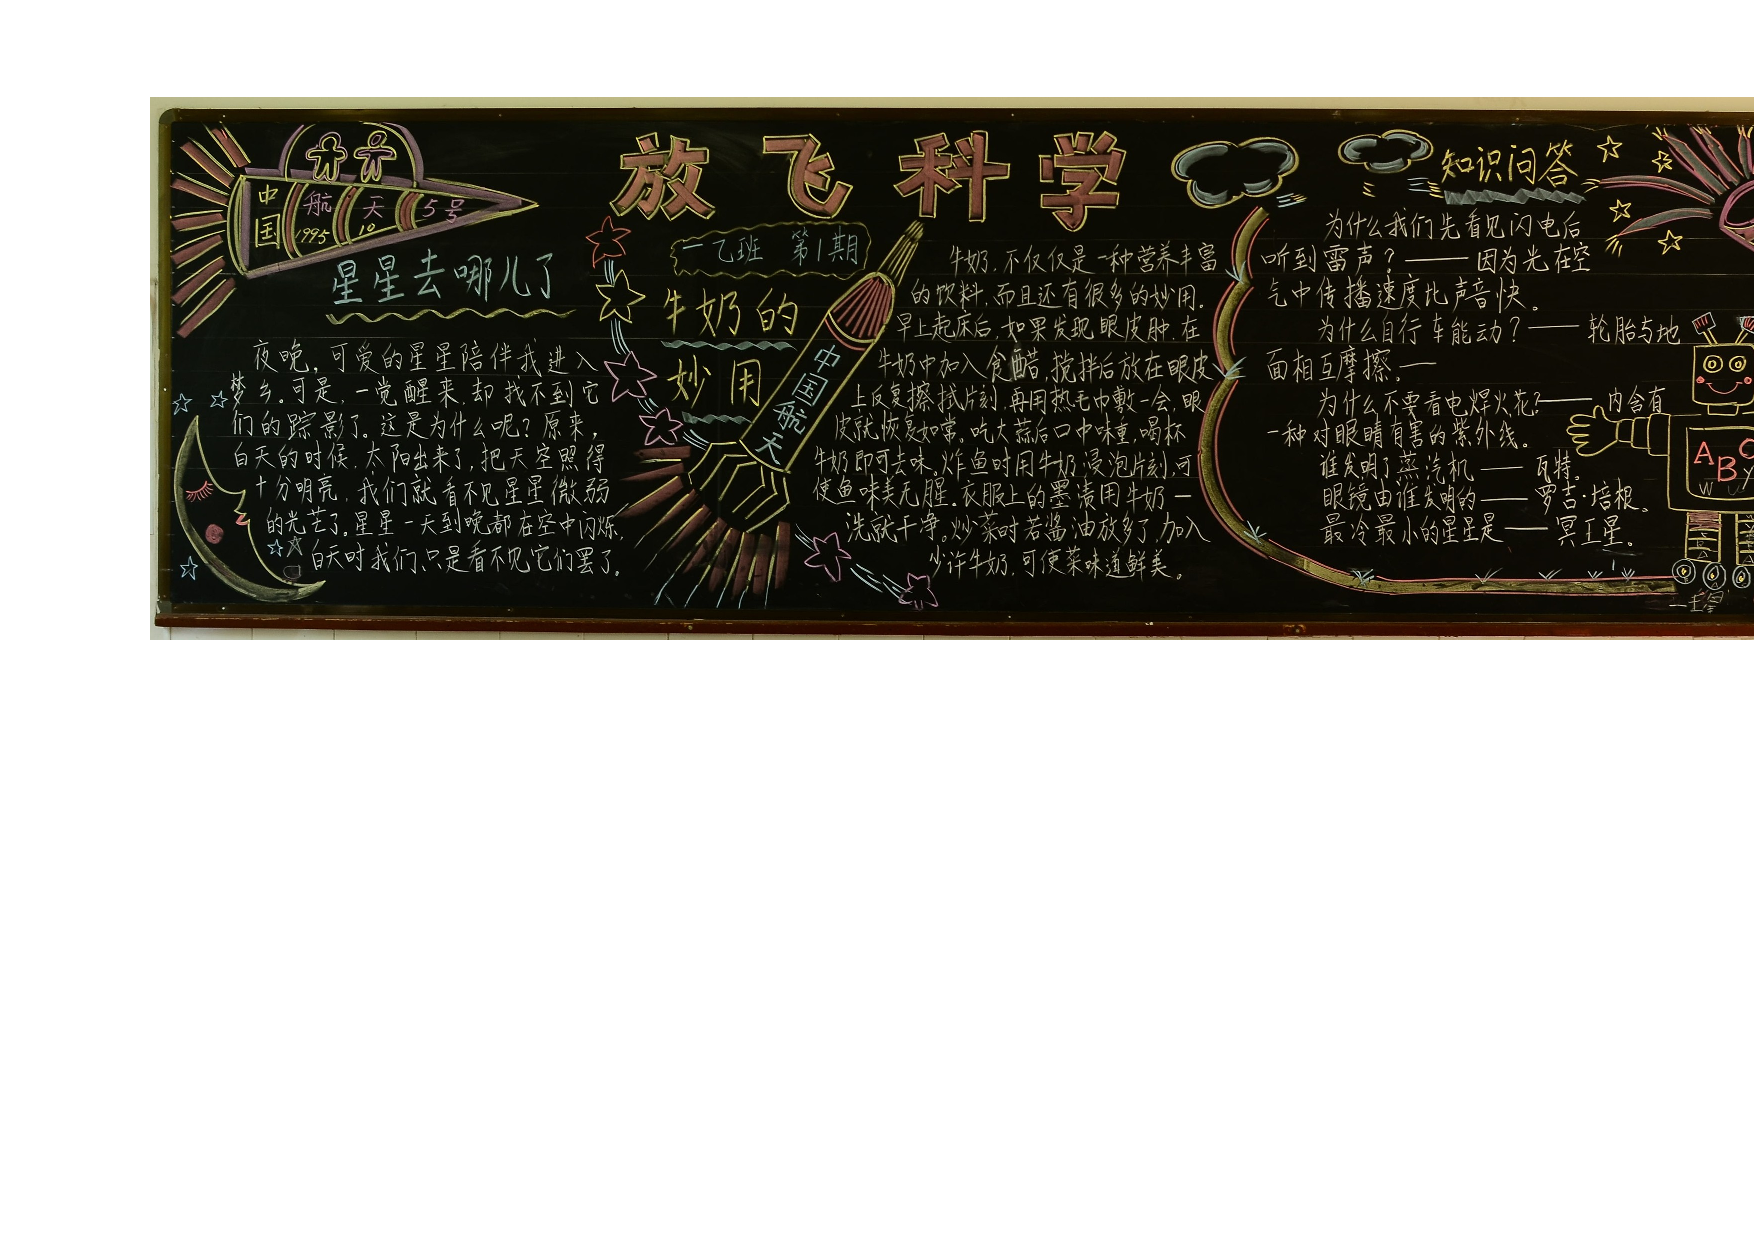 放飞科学
中国
航天5号
1995
10
星星去哪儿了
夜晚，可爱的星星陪伴我进入
梦乡。可是，一觉醒来，却找不到它
们的踪影了。这是为什么呢？原来，
白天的时候，太阳出来了，把天空照得
十分明亮，我们就看不见星星微弱
的光芒了。星星一天到晚都在空中闪烁，
白天时我们只是看不见它们罢了。
一乙班 第1期
牛奶的
妙用
中国航天
牛奶，不仅仅是一种营养丰富
的饮料，而且还有很多的妙用。
早上起床后，如果发现眼皮肿，在
牛奶中加入食醋，搅拌后放在眼皮
上反复擦拭片刻，再用热毛巾敷一会，眼
皮就恢复如常。吃大蒜后口中味重，喝杯
牛奶即可去味。炸鱼时用牛奶浸泡片刻，可
使鱼味美无腥。衣服上的墨渍用牛奶一
洗就干净。炒菜时若酱油放多了，加入
少许牛奶，可使菜味道鲜美。
知识问答
为什么我们先看见闪电后
听到雷声？——因为光在空
气中传播速度比声音快。
为什么自行车能动？——轮胎与地
面相互摩擦。—
为什么不要看电焊火花？——内含有
一种对眼睛有害的紫外线。
谁发明了蒸汽机——瓦特。
眼镜由谁发明的——罗吉·培根。
最冷最小的星星是——冥王星。
ABC
W
Y